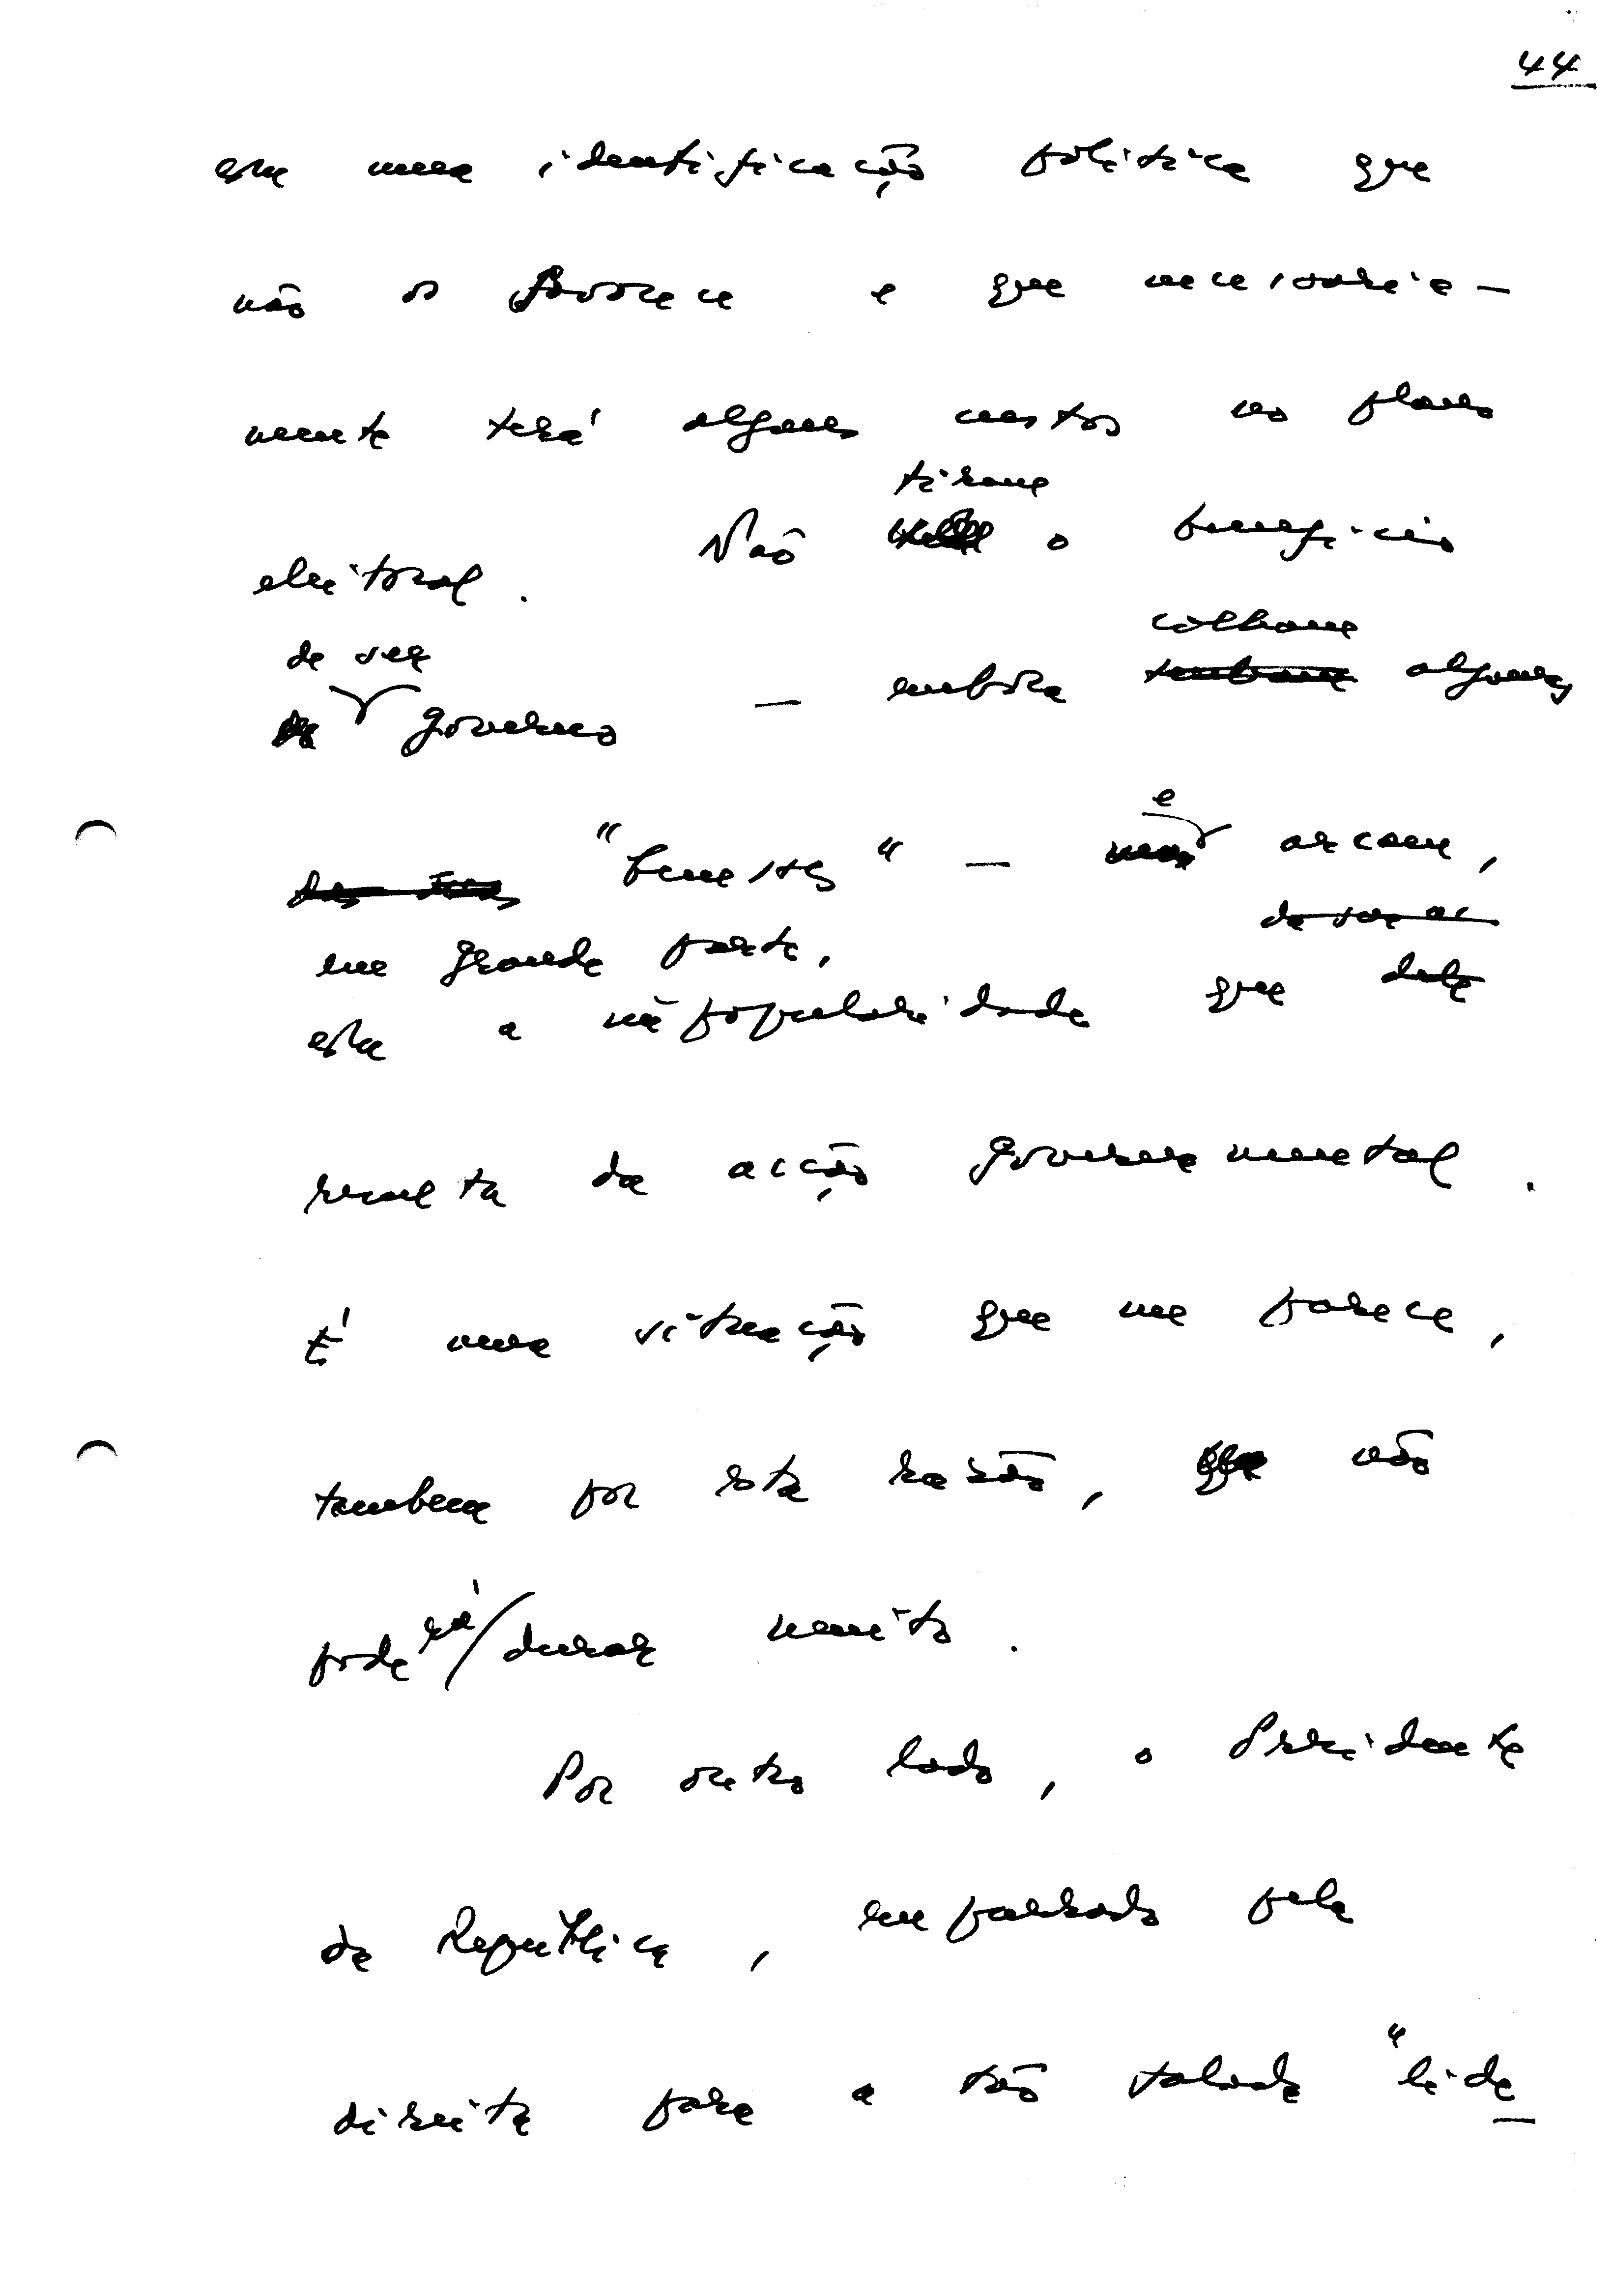 44
em uma identificação política que
não os favorece e que necessaria-
mente terá alguns custos no plano
tiram
eleitoral. Não o benefício
colham
de ser
governo — embora tenham alguns
e
"benesses" — arcam,
da sua ac
em grande parte,
com a impopularidade que dela
resulta da acção governamental.
É uma situação que me parece,
tambem por esta razão, não
poderá/durar muito.
Por outro lado, o Presidente
da República, empurrado pela
direita para a tão falada "lide-